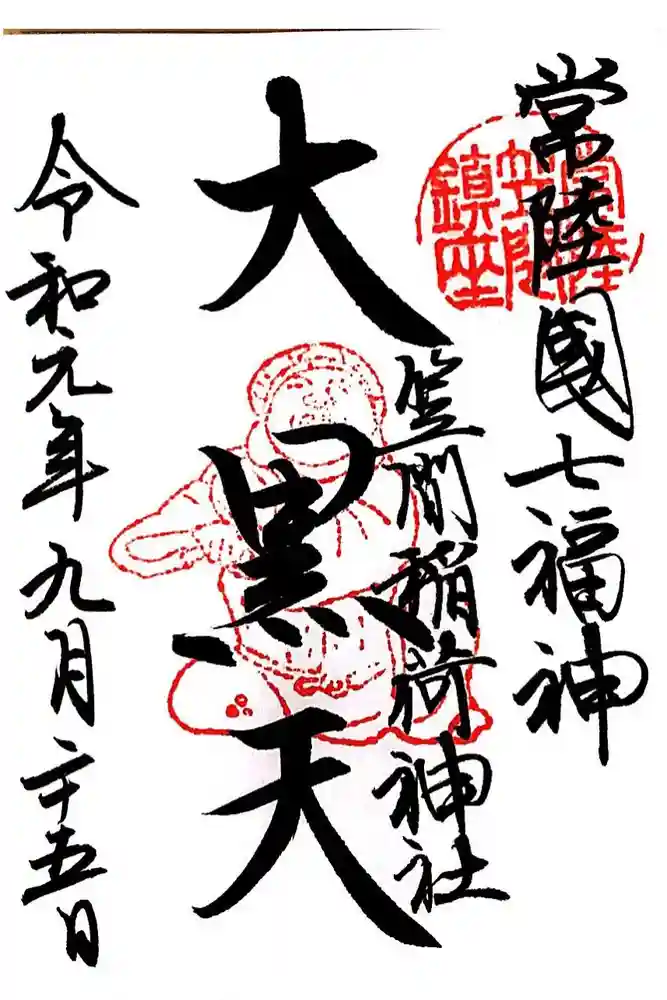 常陸國七福神
笠間稲荷神社
大黒天
令和元年九月二十五日
常陸
笠間
鎮座